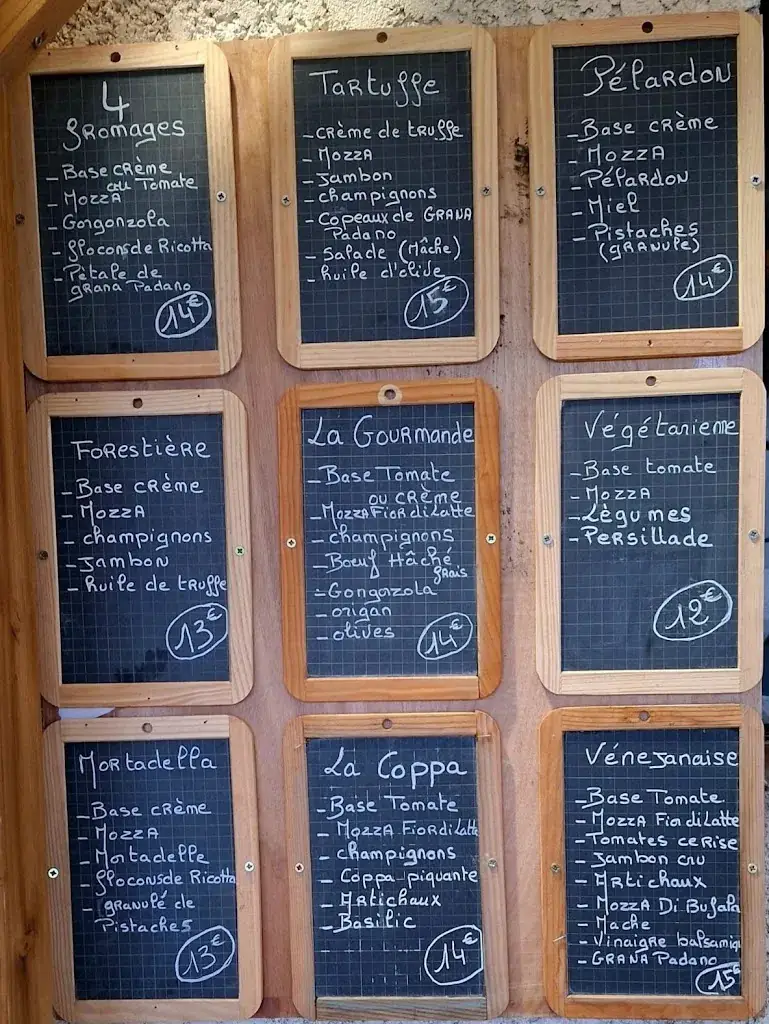 4
fromages
- Base crème
ou Tomate
- Mozza
- Gorgonzola
- flocons de Ricotta
- Pétale de
grana Padano
14€
Tartuffe
- crème de truffe
- Mozza
- Jambon
- champignons
- Copeaux de GRANA
Padano
- Salade (Mâche)
- huile d'olive
15€
Pélardon
- Base crème
- Mozza
- Pélardon
- Miel
- Pistaches
(GRANULé)
14€
Forestière
- Base crème
- Mozza
- champignons
- Jambon
- huile de truffe
13€
La Gourmande
- Base Tomate
ou crème
- Mozza Fior di Latte
- champignons
- Boeuf Hâché
frais
- Gongozola
- origan
- olives
14€
Végétarienne
- Base tomate
- Mozza
- Lègumes
- Persillade
12€
Mortadella
- Base crème
- Mozza
- Mortadelle
- flocons de Ricotta
- granulé de
Pistaches
13€
La Coppa
- Base Tomate
- Mozza Fior di Latte
- champignons
- Coppa piquante
- Artichaux
- Basilic
14€
Vénejanaise
- Base Tomate
- Mozza Fior di Latte
- Tomates cerise
- Jambon cru
- Artichaux
- Mozza Di Bufala
- Mache
- Vinaigre balsamiq
- GRANA Padano
15€